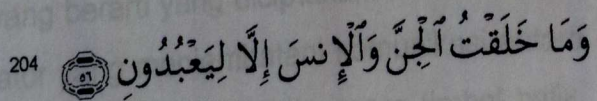 وَمَا خَلَقْتُ ٱلْجِنَّ وَٱلْإِنسَ إِلَّا لِيَعْبُدُونِ ٥٦ 204